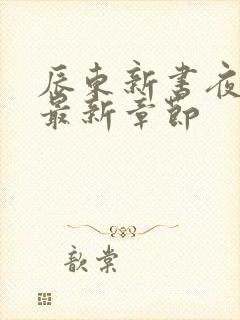 辰东新书夜
最新章节
歆棠